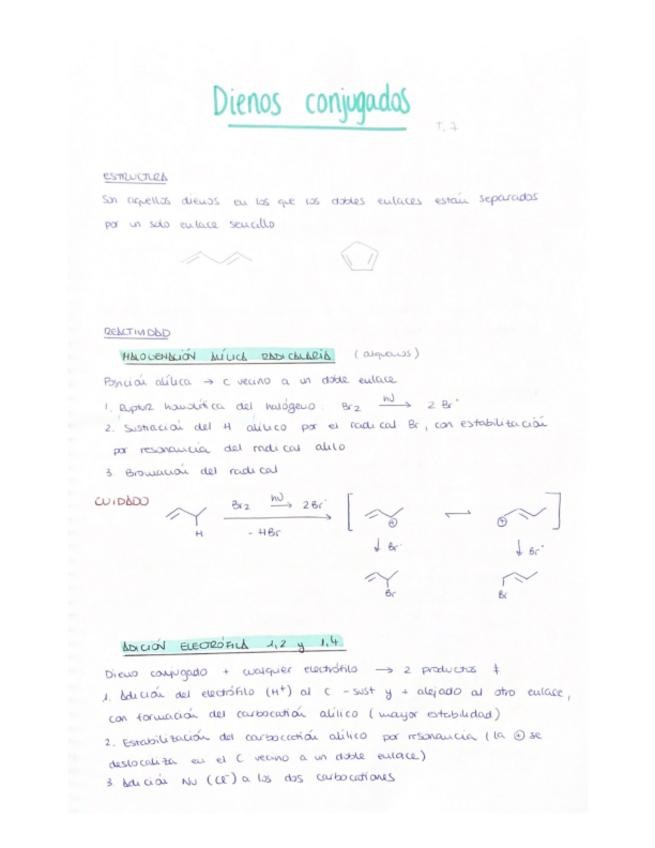 Dienos conjugados
T.7
ESTRUCTURA
Son aquellos dienos en los que los dobles enlaces están separados
por un solo enlace sencillo
REACTIVIDAD
HALOGENACIÓN ALÍLICA RADICALARIA (alquenos)
Posición alílica → C vecino a un doble enlace
1. Ruptur homolítica del halógeno: Br2 hν → 2 Br·
2. Sustracción del H alílico por el radical Br, con estabilización
por resonancia del radical alilo
3. Bromación del radical
CUIDADO
Br2 hν → 2Br·
- HBr
H
⊕ ⇌ ⊕
↓ Br· ↓ Br·
Br Br
ADICIÓN ELECTRÓFILA 1,2 y 1,4
Dieno conjugado + cualquier electrófilo → 2 productos ≠
1. Adición del electrófilo (H+) al C - sust y + alejado al otro enlace,
con formación del carbocatión alílico (mayor estabilidad)
2. Estabilización del carbocatión alílico por resonancia (la ⊕ se
deslocaliza en el C vecino a un doble enlace)
3. Adición Nu (Cl-) a los dos carbocationes